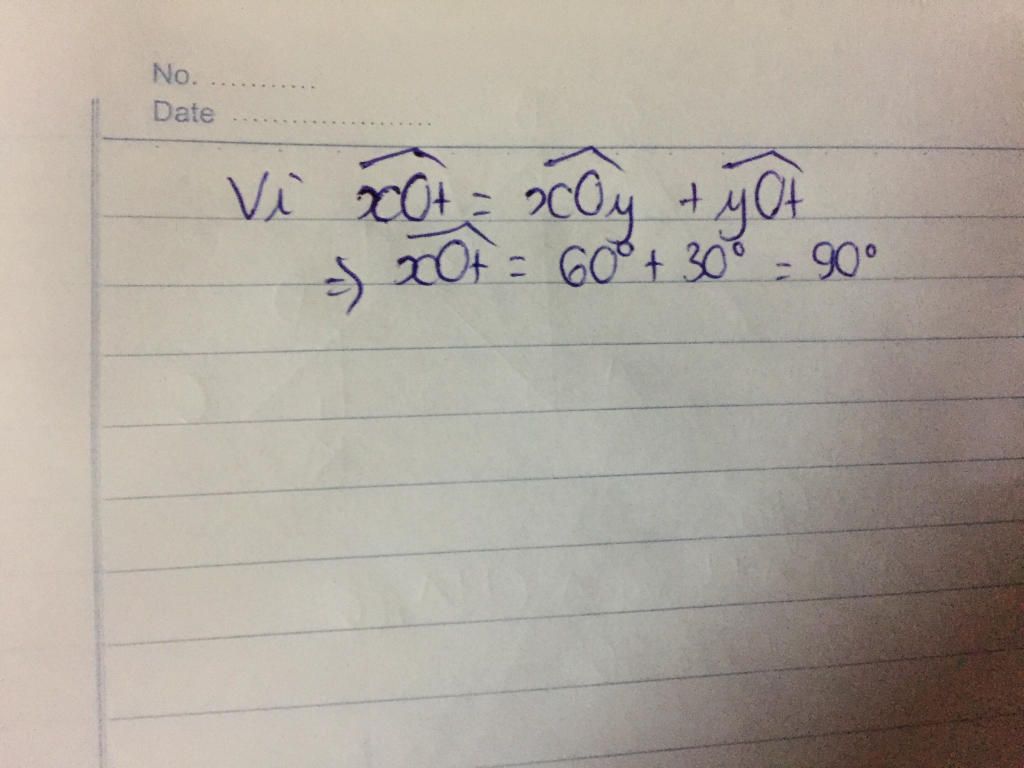 No. ...........
Date .....................
Vì $\widehat{xOt} = \widehat{xOy} + \widehat{yOt}$
$\Rightarrow \widehat{xOt} = 60° + 30° = 90°$